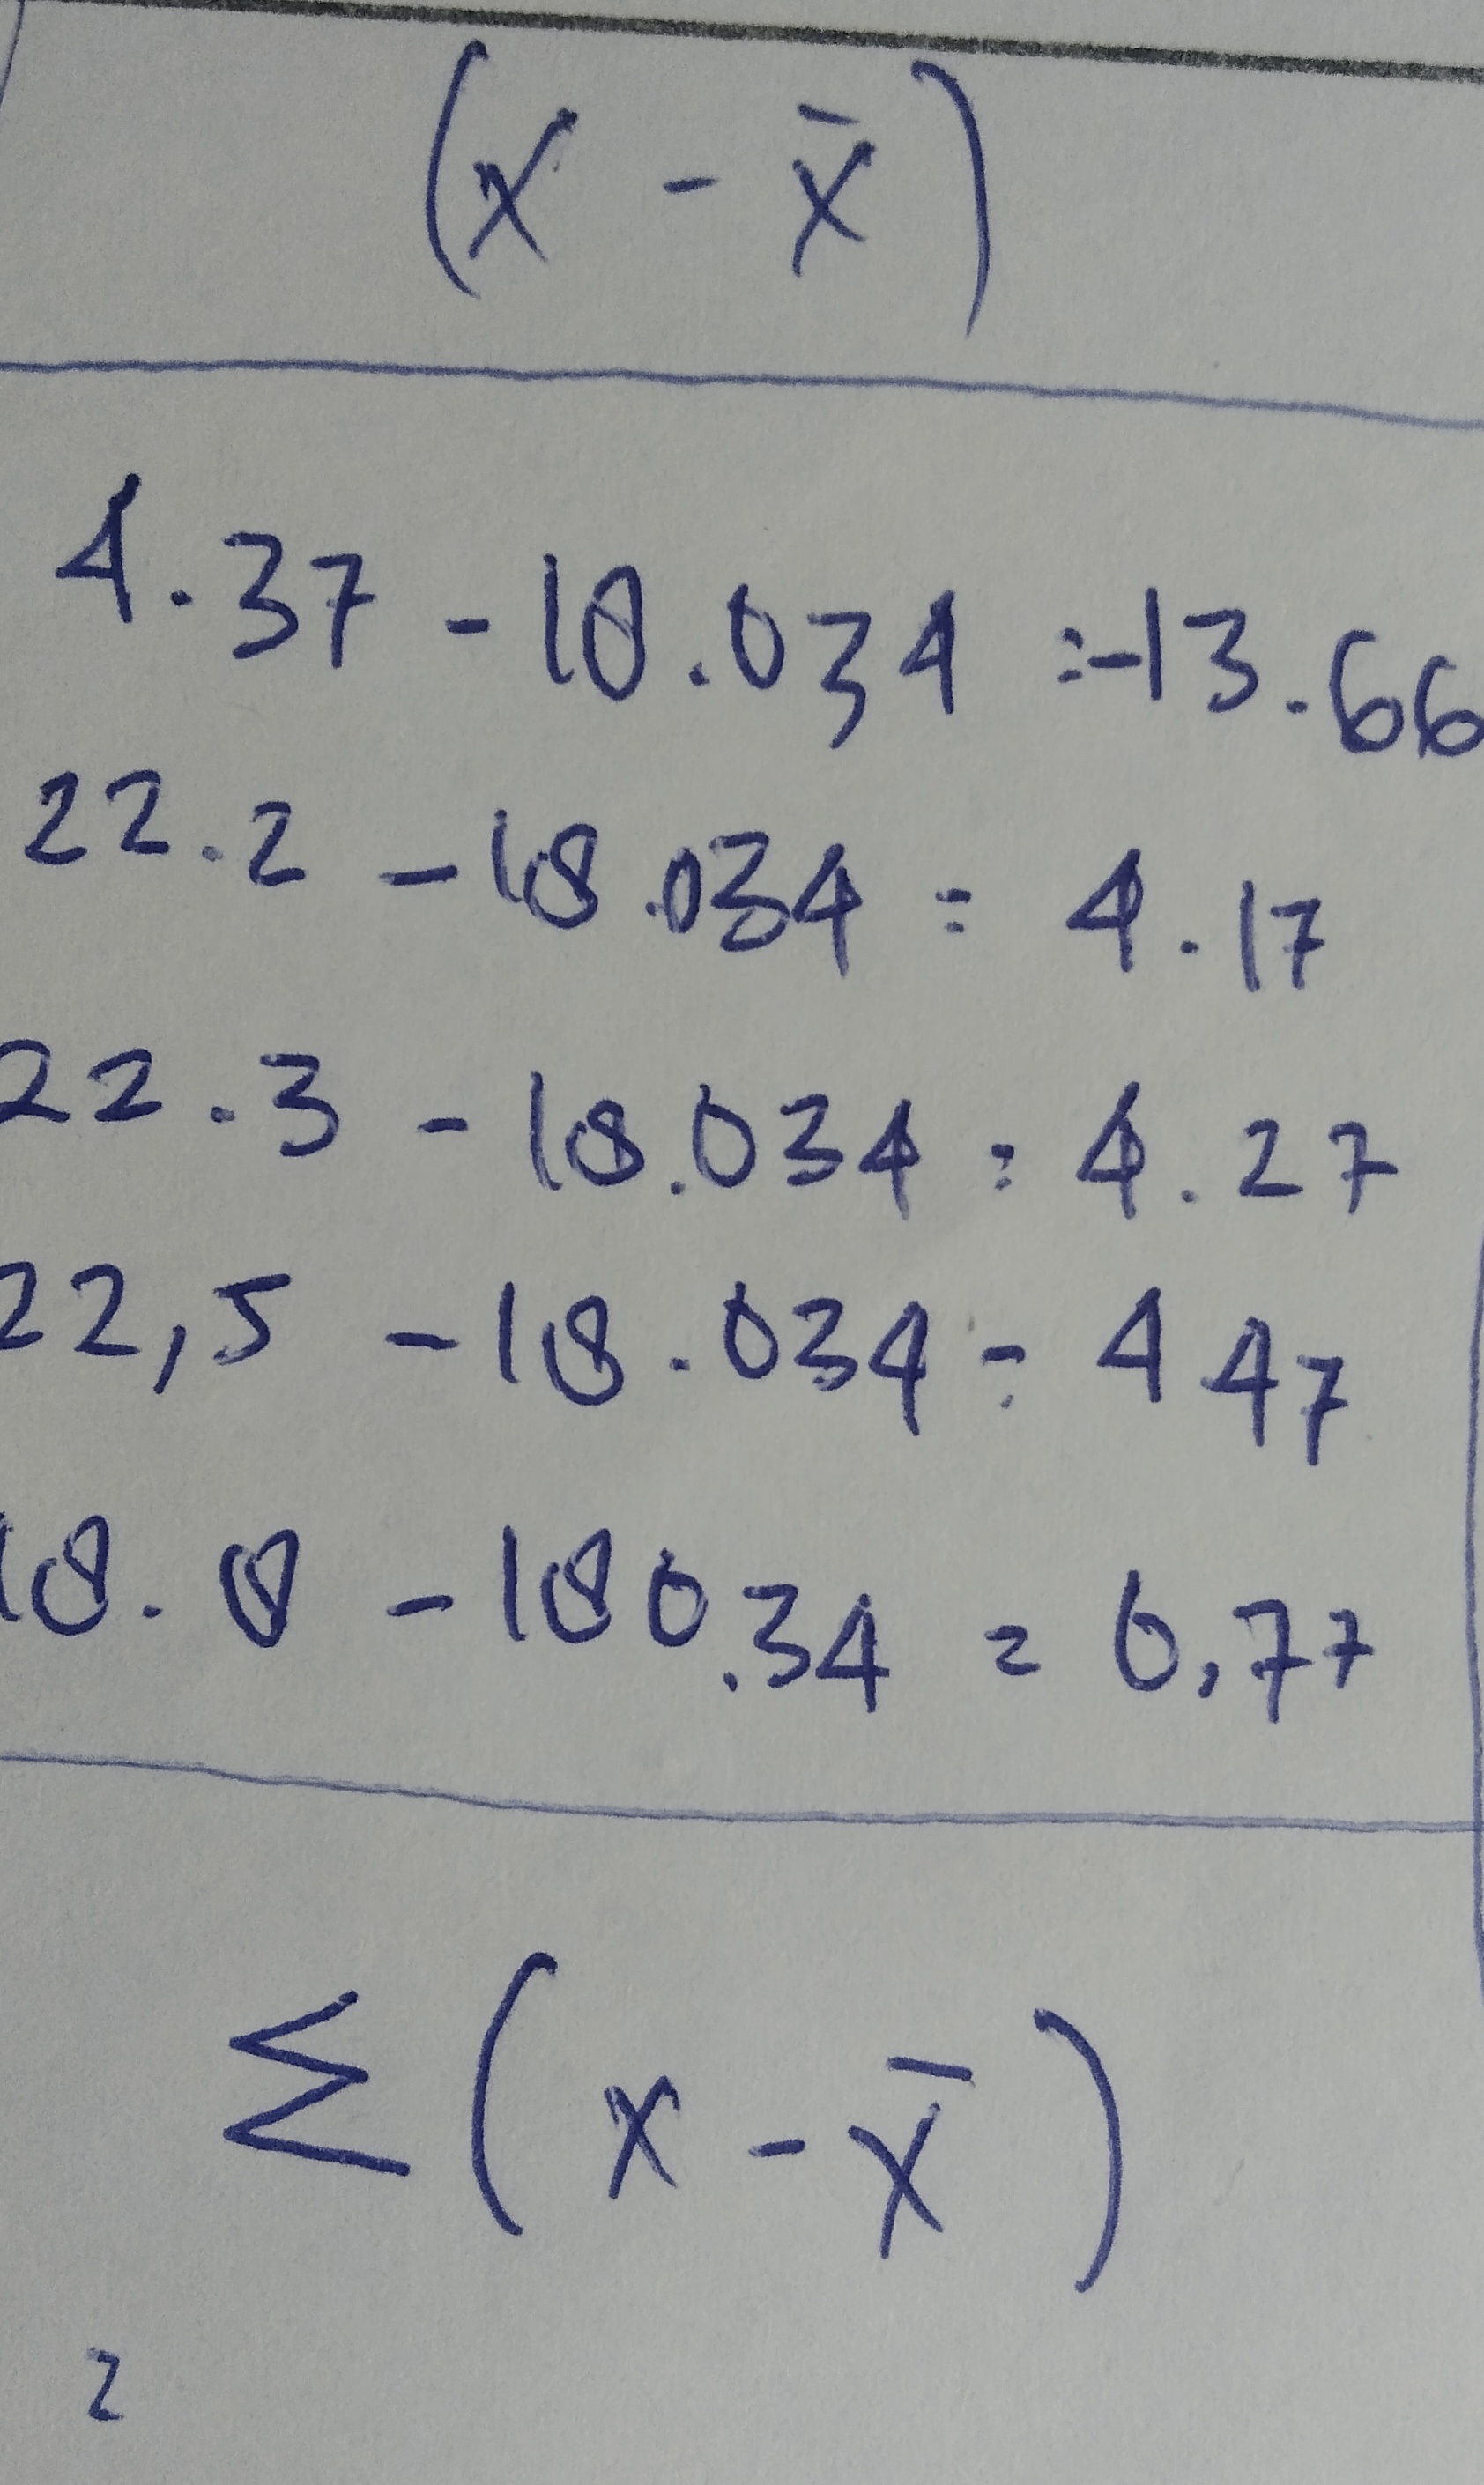 (x - x̄)
4.37 - 18.034 = -13.66
22.2 - 18.034 = 4.17
22.3 - 18.034 = 4.27
22,5 - 18.034 = 4 47
18.8 - 180.34 = 0,77
Σ(x - x̄)
=